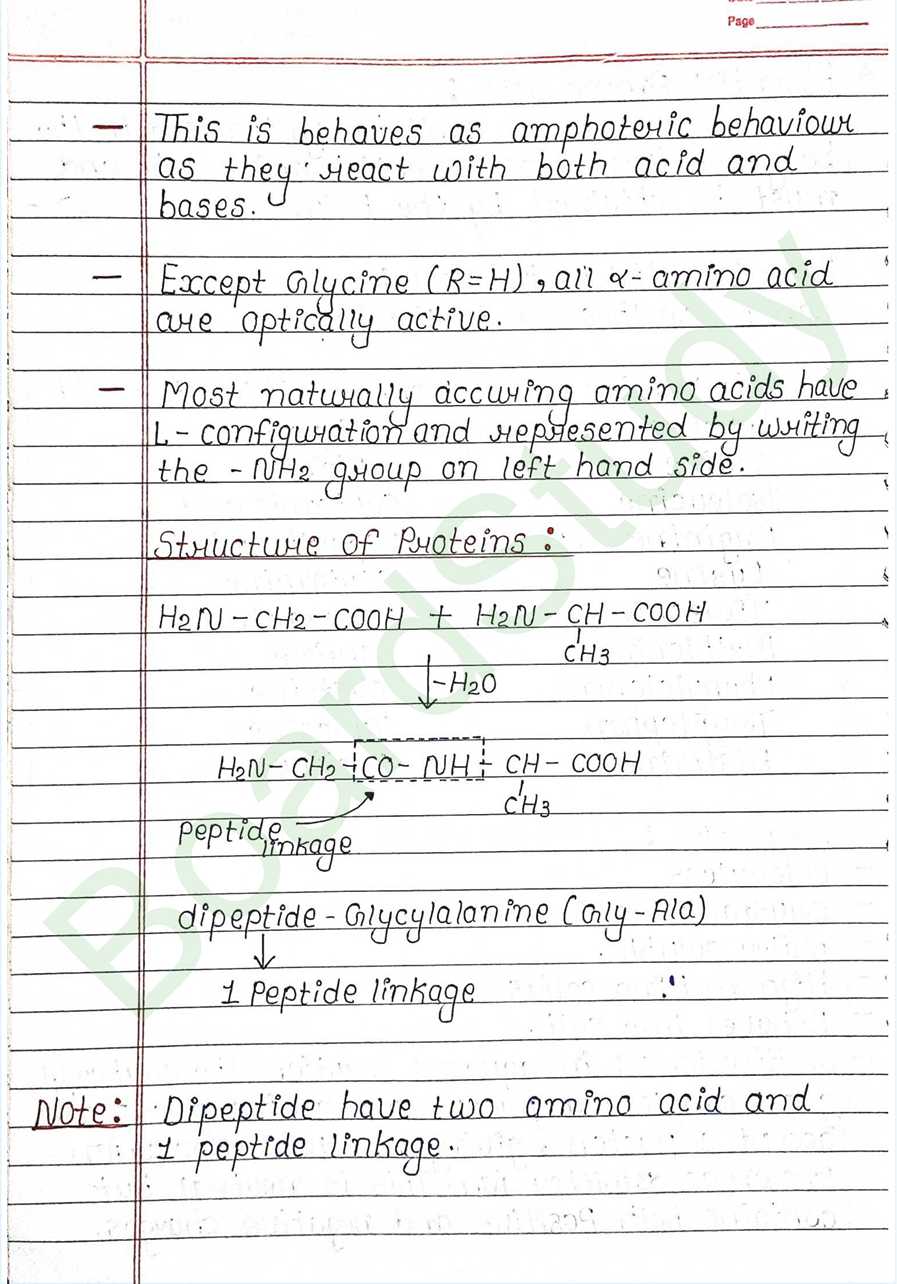 Page
— This is behaves as amphoteric behaviour
as they react with both acid and
bases.
— Except Glycine (R=H), all α-amino acid
are optically active.
— Most naturally accuring amino acids have
L-configuration and represented by writing
the -NH2 group on left hand side.
Structure of Proteins:
H2N-CH2-COOH + H2N-CH-COOH
CH3
-H2O
H2N-CH2-CO-NH-CH-COOH
CH3
Peptide
linkage
dipeptide-Glycylalanine (Gly-Ala)
1 Peptide linkage
Note: Dipeptide have two amino acid and
1 peptide linkage.
BoardStudy